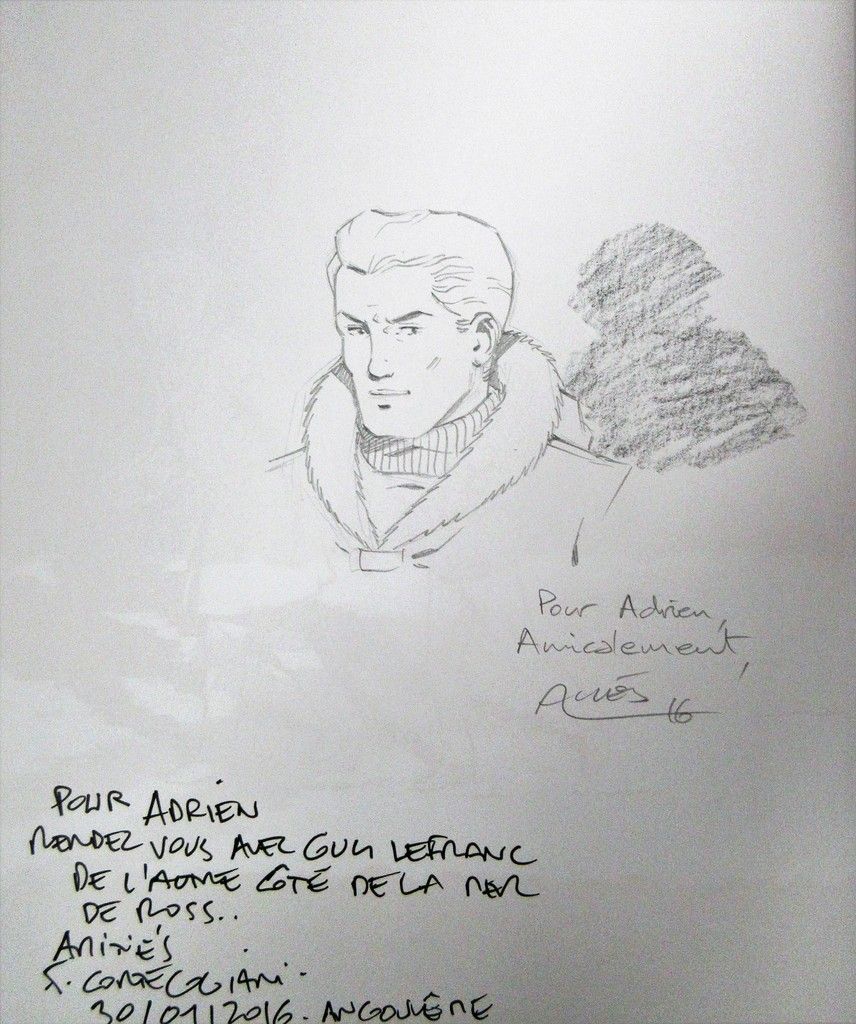 Pour Adrien,
Amicalement,
Alvès 16
POUR ADRIEN
RENDEZ VOUS AVEC GUY LEFRANC
DE L'AUTRE CÔTÉ DE LA MER
DE ROSS..
AMITIÉS
F. CORTEGGIANI.
30/01/2016. ANGOULÊME